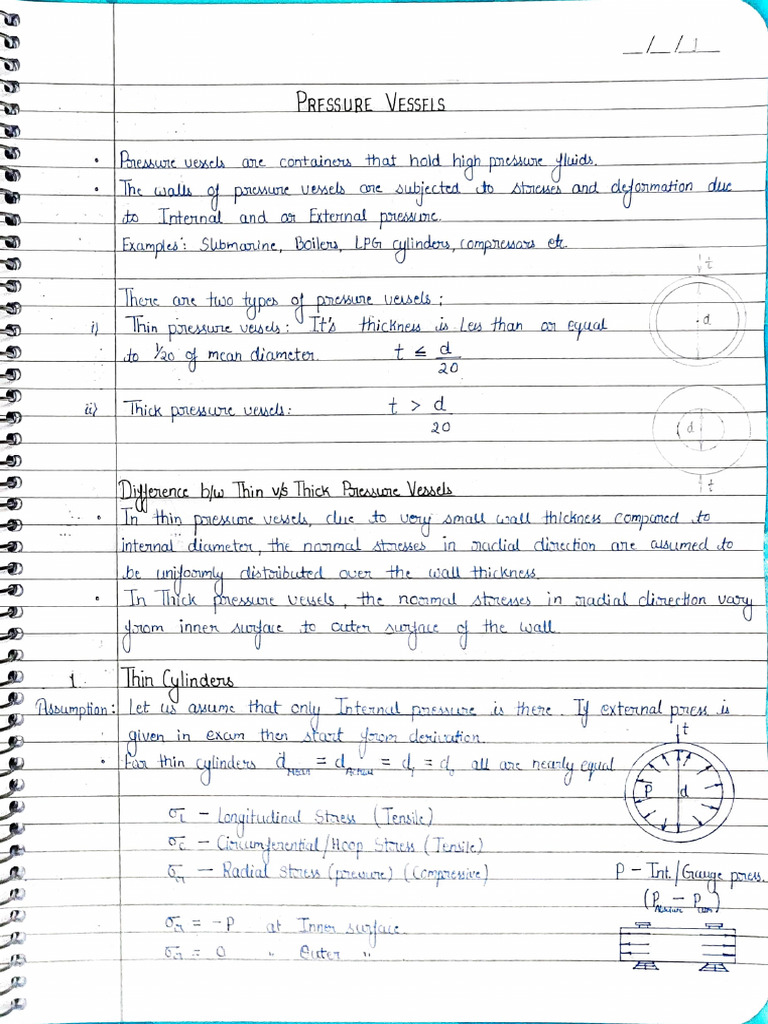 _/_/_
PRESSURE VESSELS
• Pressure vessels are containers that hold high pressure fluids.
• The walls of pressure vessels are subjected to stresses and deformation due
to Internal and or External pressure.
Examples: Submarine, Boilers, LPG cylinders, compressors etc.
t
There are two types of pressure vessels:
i) Thin pressure vessels: It's thickness is Less than or equal
d
to 1/20 of mean diameter. t ≤ d/20
ii) Thick pressure vessels: t > d/20
d
t
Difference b/w Thin v/s Thick Pressure Vessels
• In thin pressure vessels, due to very small wall thickness compared to
internal diameter, the normal stresses in radial direction are assumed to
be uniformly distributed over the wall thickness.
• In Thick pressure vessels, the normal stresses in radial direction vary
from inner surface to outer surface of the wall.
1. Thin Cylinders
Assumption: Let us assume that only Internal pressure is there. If external press is
given in exam then start from derivation.
t
• For thin cylinders d_Mean = d_Actual = d_i = d_o all are nearly equal
P d
σ_L - Longitudinal Stress (Tensile)
σ_c - Circumferential/Hoop Stress (Tensile)
σ_r - Radial Stress (pressure) (Compressive)
P - Int./Gauge press.
(P_Absolute - P_atm)
σ_r = -P at Inner surface.
σ_r = 0 " Outer "